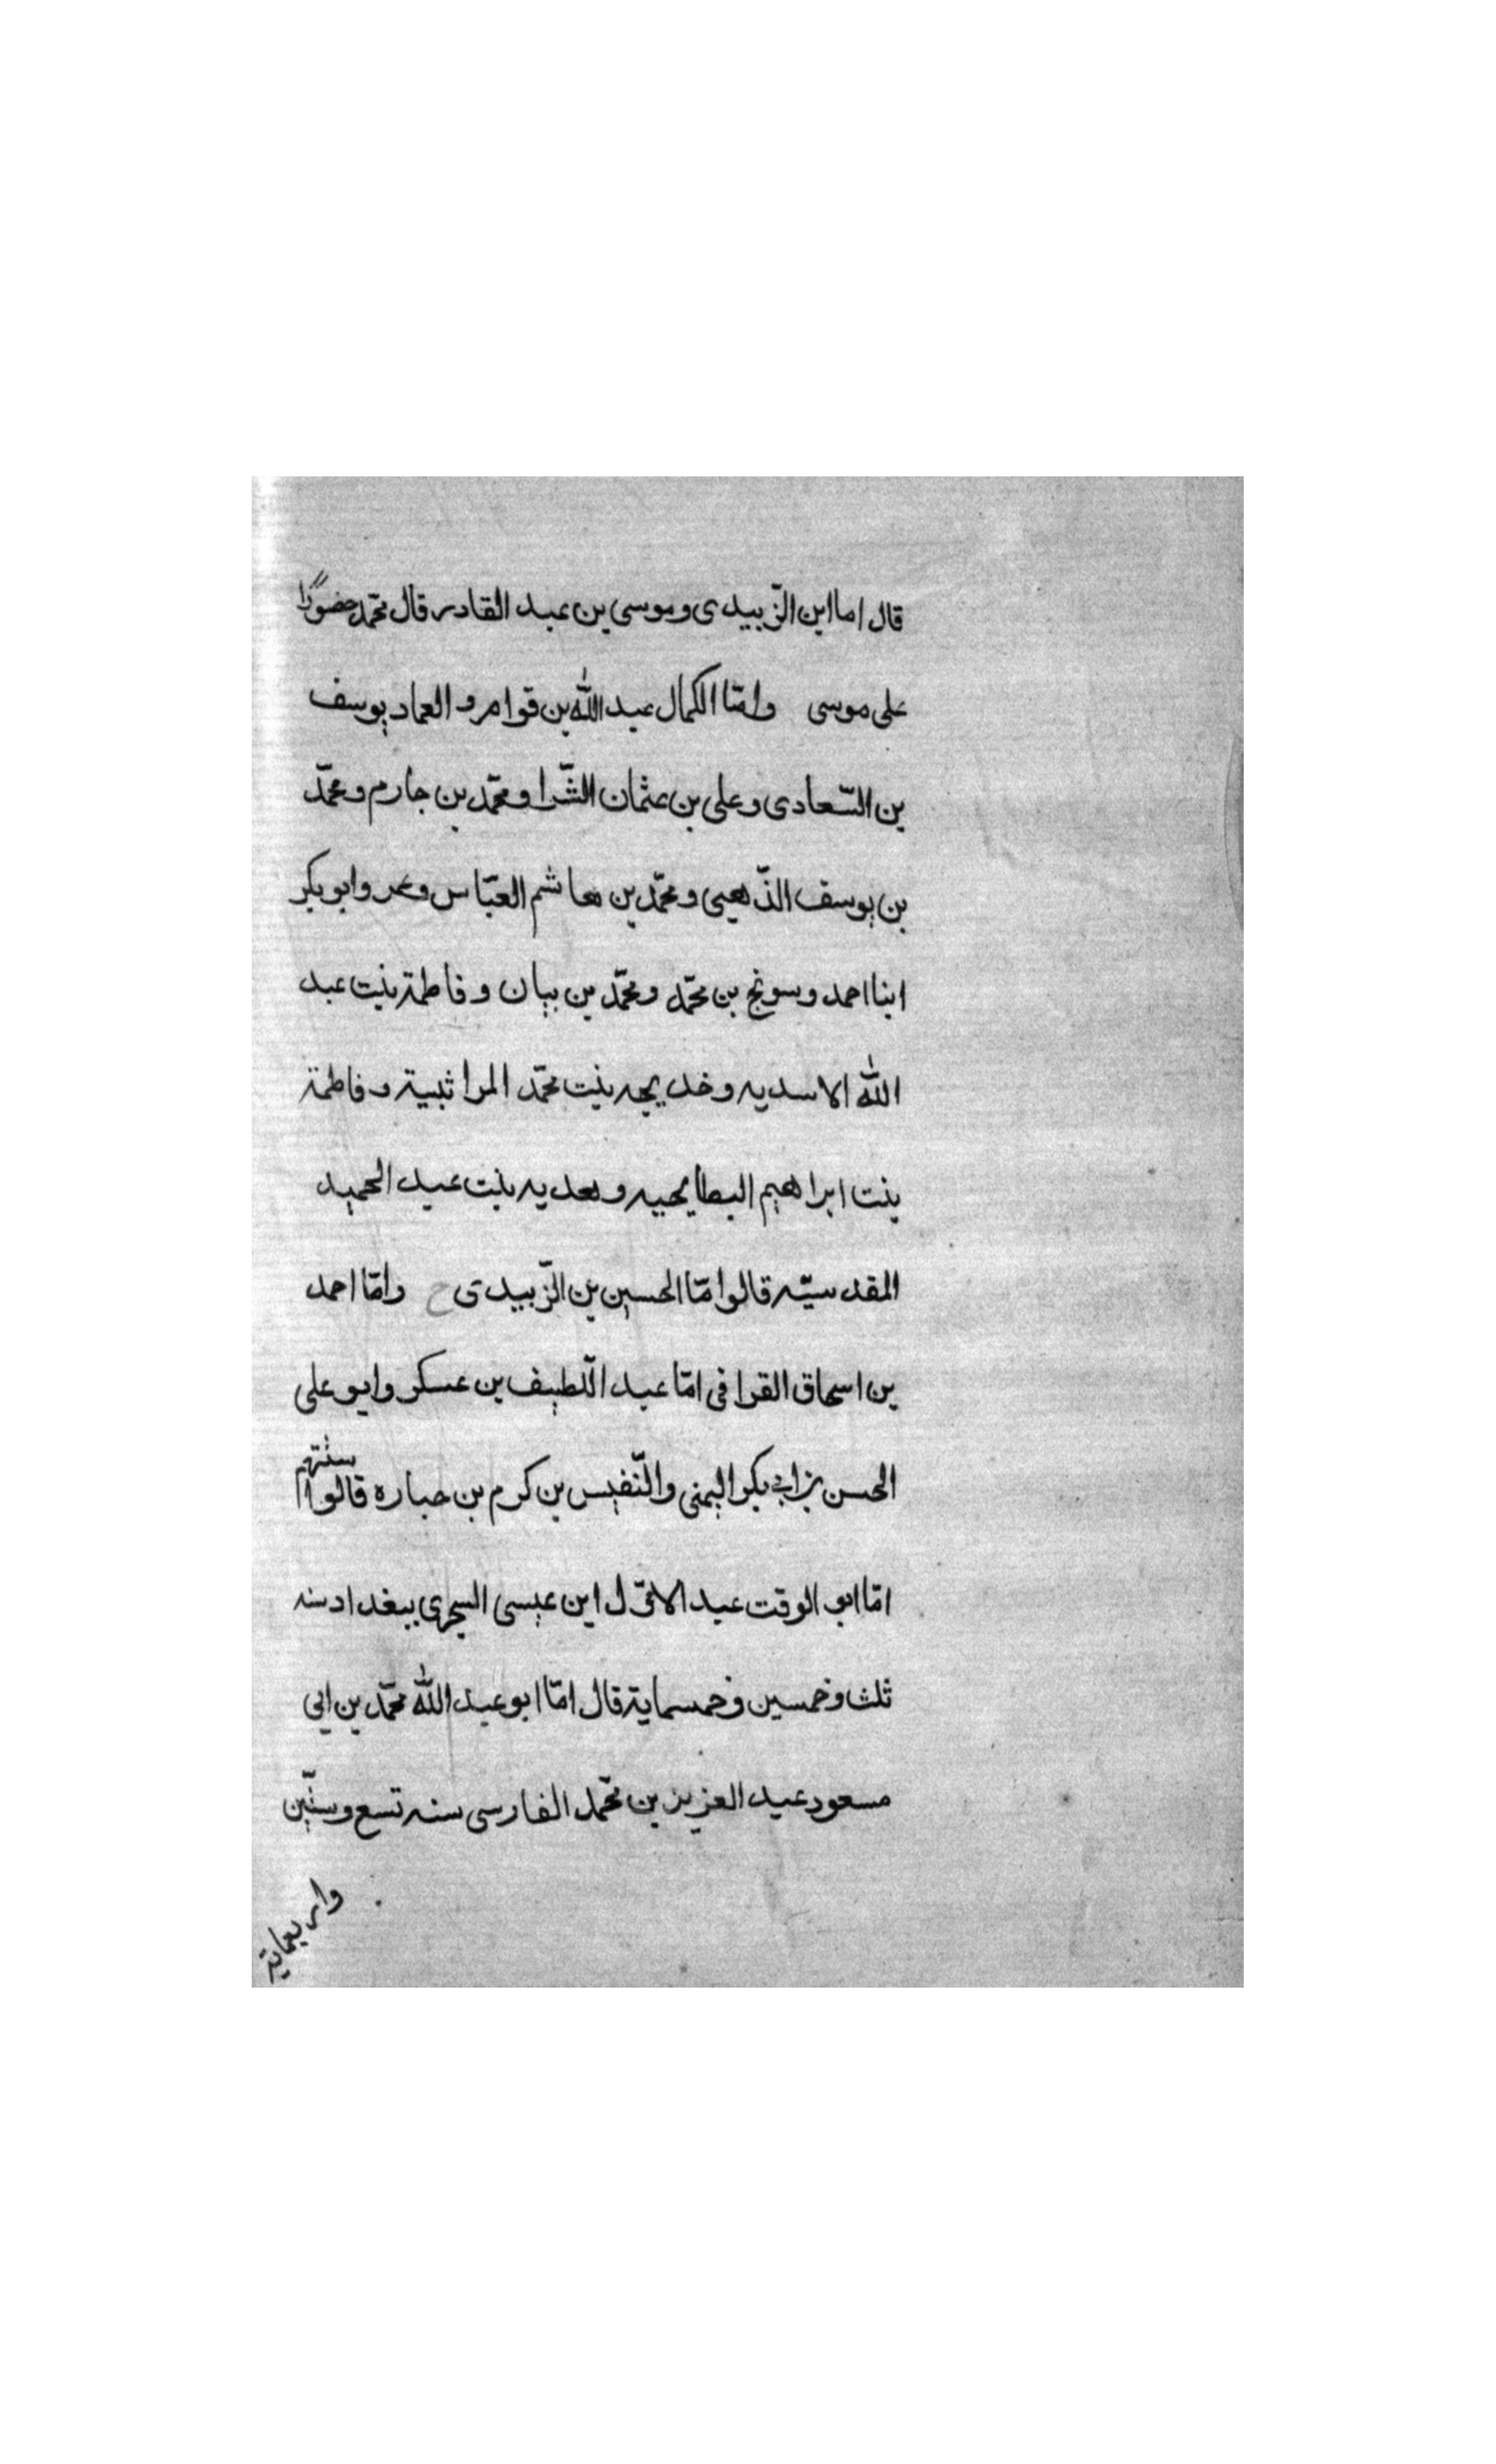 قال اما ابن الزّبيدى وموسى بن عبد القادر قال محمّد حضورًا
على موسى وامّا الكمال عبد اللّٰه بن قوام و العماد يوسف
بن السّعادى وعلى بن عثمان الشّرا ومحمّد بن حازم ومحمّد
بن يوسف الذّهبى ومحمّد بن هاشم العبّاس وعمر وابو بكر
ابنا احمد وسونج بن محمّد ومحمّد بن بيان وفاطمة بنت عبد
اللّٰه الاسديه وخديجه بنت محمّد المراثبية وفاطمة
بنت ابراهيم البطايحيه وهديه بنت عبد الحميد
المقدسيّه قالوا امّا الحسين بن الزّبيدى ح وامّا احمد
بن اسحاق القرافى امّا عبد اللّطيف بن عسكر وابو على
الحسن بن ابى بكر اليمنى والنّفيس بن كرم بن حباره قالوا ستتهم
امّا ابو الوقت عبد الاوّل ابن عيسى السجزى ببغداد سنه
ثلث وخمسين وخمسماية قال امّا ابو عبد اللّٰه محمّد بن ابى
مسعود عبد العزيز بن محمّد الفارسى سنه تسع وستّين
واربعماية